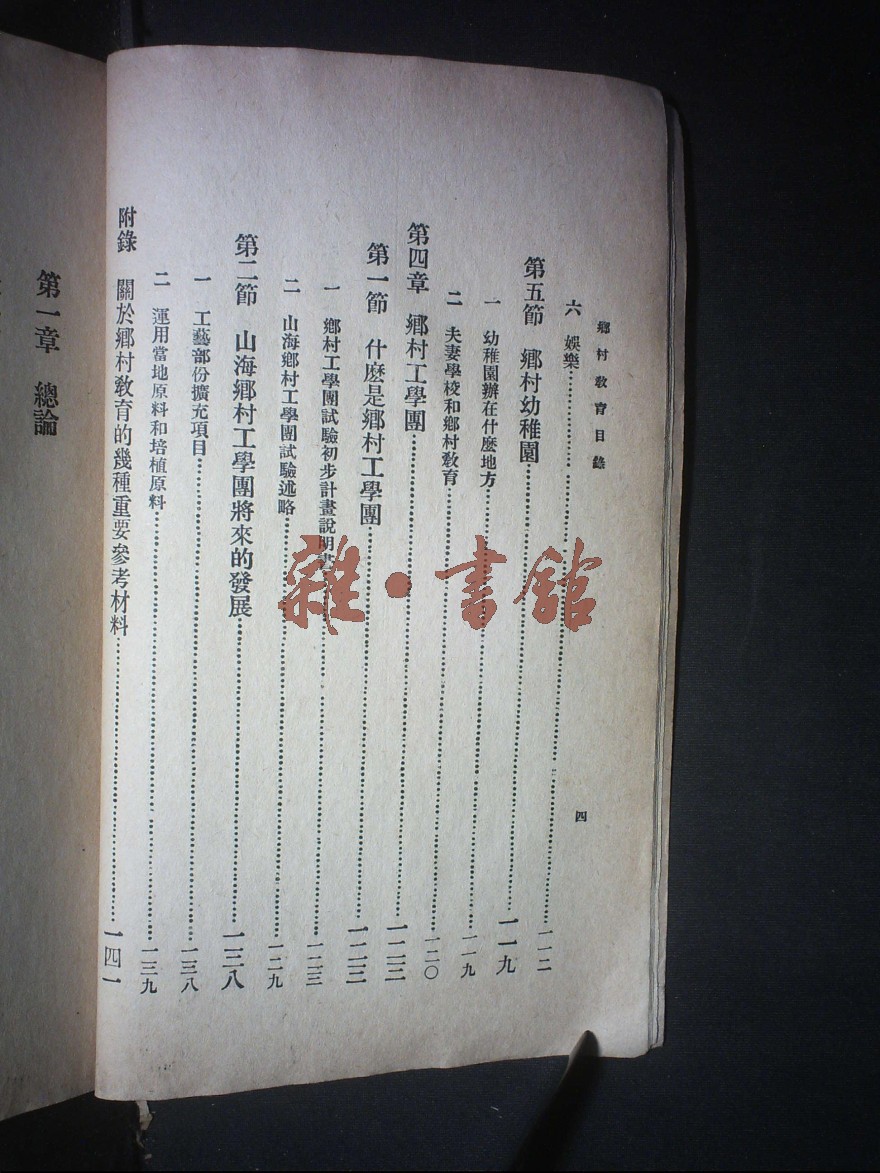 鄉村教育目錄
四
六 娛樂…………一一二
第五節 鄉村幼稚園…………一一九
一 幼稚園辦在什麼地方…………一一九
二 夫妻學校和鄉村教育…………一二〇
第四章 鄉村工學團…………一二三
第一節 什麼是鄉村工學團…………一二三
一 鄉村工學團試驗初步計畫說明書…………一二三
二 山海鄉村工學團試驗述略…………一二九
第二節 山海鄉村工學團將來的發展…………一三八
一 工藝部份擴充項目…………一三八
二 運用當地原料和培植原料…………一三九
附錄 關於鄉村教育的幾種重要參考材料…………一四一
第一章 總論
雜·書館